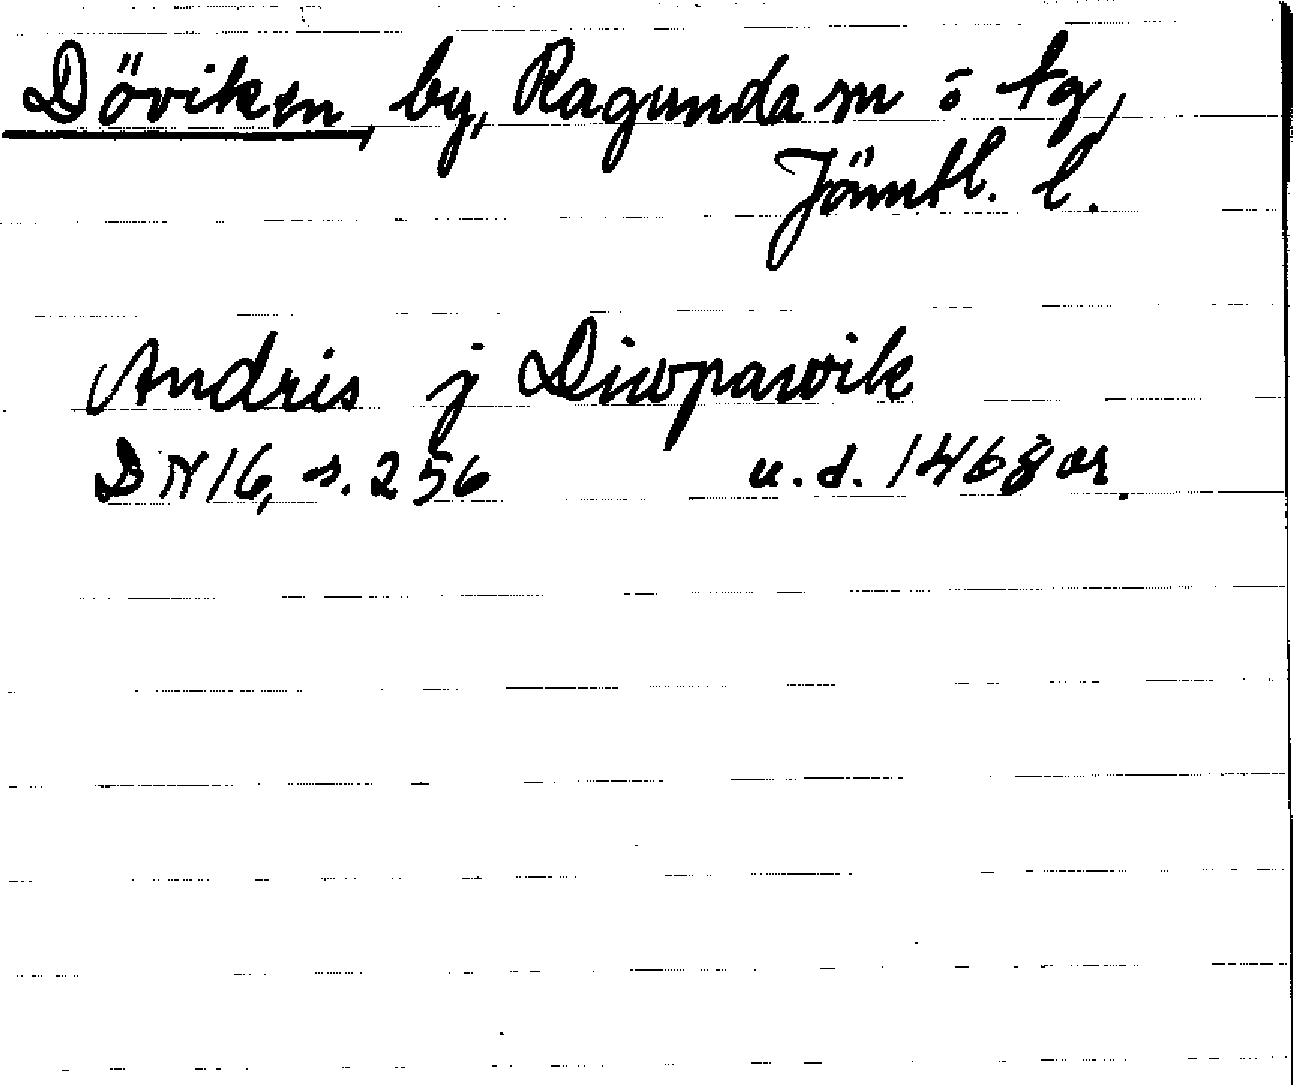 Döviken, by, Ragunda sn o tg,
Jämtl. l.
Andris j Diwpawik
DN 16, s. 256 u.d. 1468 or.